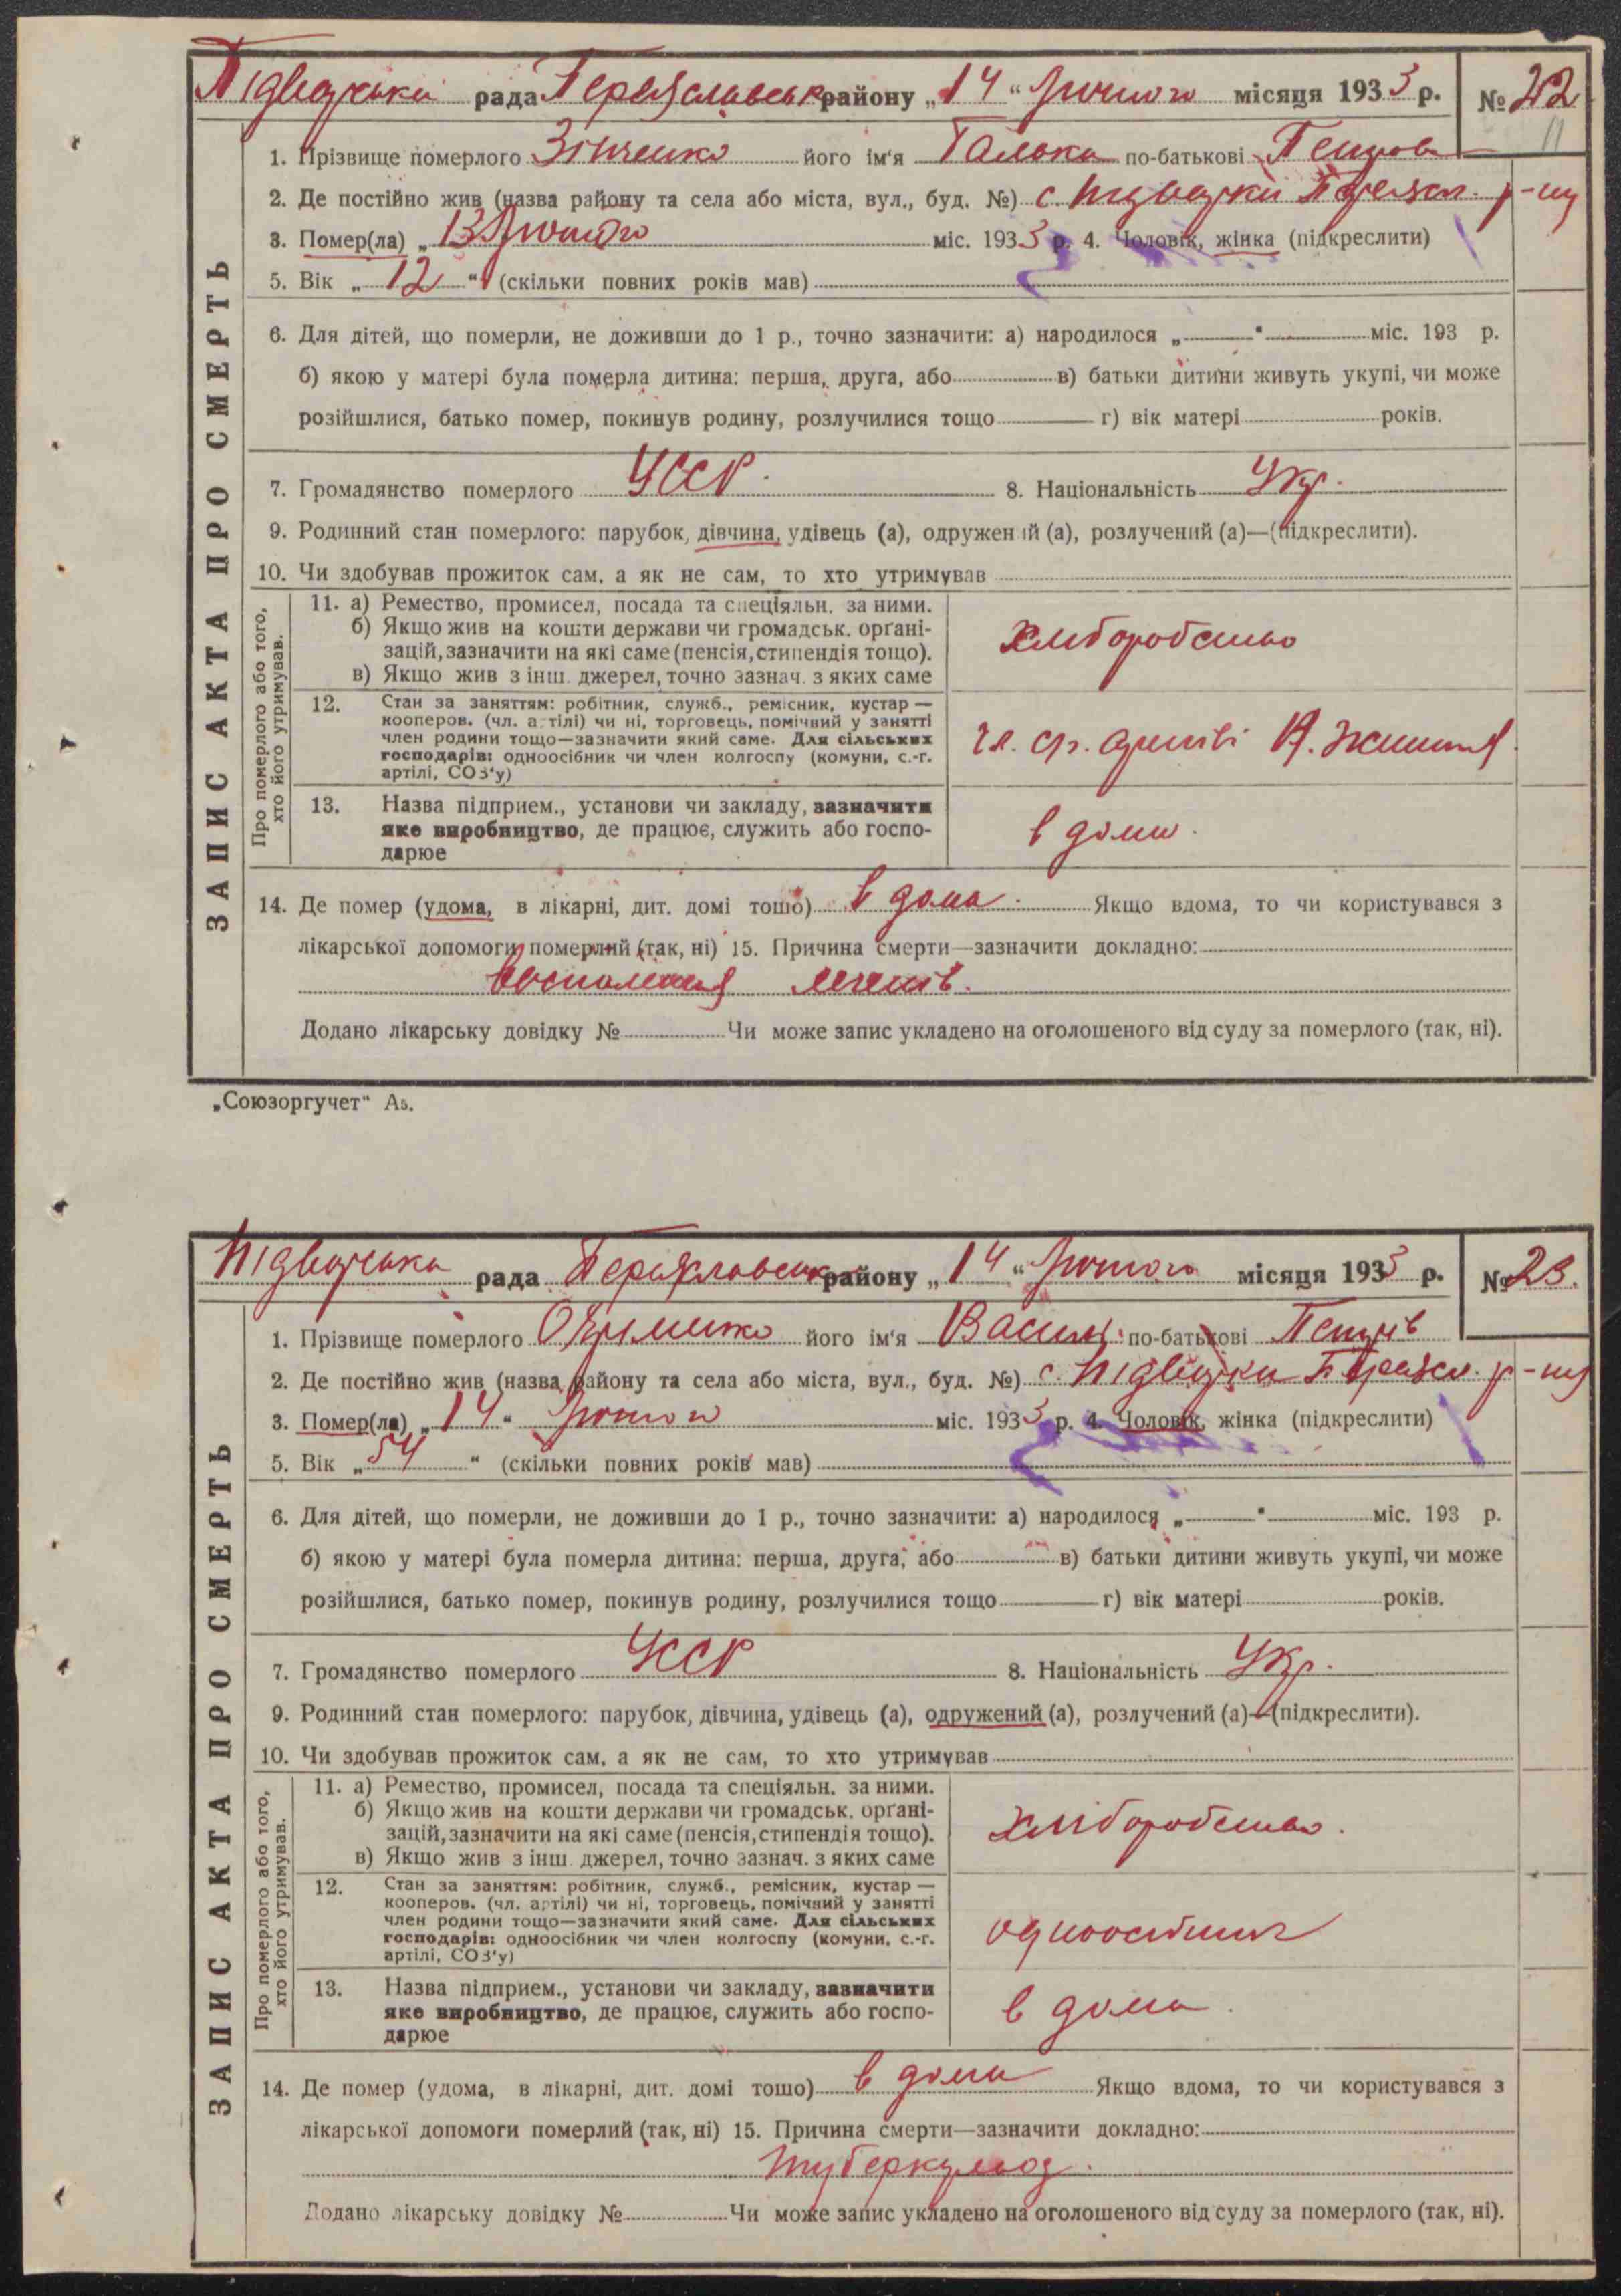 Підвузька рада Переяславськ району „14“ Лютого місяця 1933 р. № 22
11
1. Прізвище померлого Зінченко його ім'я Галька по-батькові Петрова
2. Де постійно жив (назва району та села або міста, вул., буд. №) с. Підвузки Переясл. р-ну
3. Помер(ла) „13 Лютого міс. 1933 р. 4. Чоловік, жінка (підкреслити)
5. Вік „12“ (скільки повних років мав)
6. Для дітей, що померли, не доживши до 1 р., точно зазначити: а) народилося „ “ міс. 193 р.
б) якою у матері була померла дитина: перша, друга, або в) батьки дитини живуть укупі, чи може
розійшлися, батько помер, покинув родину, розлучилися тощо г) вік матері років.
7. Громадянство померлого УССР. 8. Національність Укр.
9. Родинний стан померлого: парубок, дівчина, удівець (а), одружений (а), розлучений (а)—(підкреслити).
10. Чи здобував прожиток сам, а як не сам, то хто утримував
ЗАПИС АКТА ПРО СМЕРТЬ
Про померлого або того,
хто його утримував.
11. а) Ремество, промисел, посада та спеціяльн. за ними.
б) Якщо жив на кошти держави чи громадськ. орґані-
зацій, зазначити на які саме (пенсія, стипендія тощо).
в) Якщо жив з інш. джерел, точно зазнач. з яких саме
хліборобство
12. Стан за заняттям: робітник, служб., ремісник, кустар —
кооперов. (чл. артілі) чи ні, торговець, помічний у занятті
член родини тощо—зазначити який саме. Для сільських
господарів: одноосібник чи член колгоспу (комуни, с.-г.
артілі, СОЗ'у)
чл. с/г. артілі
13. Назва підприєм., установи чи закладу, зазначити
яке виробництво, де працює, служить або госпо-
дарює
в дома.
14. Де помер (удома, в лікарні, дит. домі тошо) в дома. Якщо вдома, то чи користувався з
лікарської допомоги померлий (так, ні) 15. Причина смерти—зазначити докладно:
воспаления легенів.
Додано лікарську довідку № Чи може запис укладено на оголошеного від суду за померлого (так, ні).
„Союзоргучет“ А5.
Підвузька рада Переяславськ району „14“ Лютого місяця 1933 р. № 23.
1. Прізвище померлого його ім'я Василь по-батькові Петрів
2. Де постійно жив (назва району та села або міста, вул., буд. №) с. Підвузки Переясл. р-ну
3. Помер(ла) „14“ Лютого міс. 1933 р. 4. Чоловік, жінка (підкреслити)
5. Вік „54“ (скільки повних років мав)
6. Для дітей, що померли, не доживши до 1 р., точно зазначити: а) народилося „ “ міс. 193 р.
б) якою у матері була померла дитина: перша, друга, або в) батьки дитини живуть укупі, чи може
розійшлися, батько помер, покинув родину, розлучилися тощо г) вік матері років.
7. Громадянство померлого УССР 8. Національність Укр.
9. Родинний стан померлого: парубок, дівчина, удівець (а), одружений (а), розлучений (а)—(підкреслити).
10. Чи здобував прожиток сам, а як не сам, то хто утримував
ЗАПИС АКТА ПРО СМЕРТЬ
Про померлого або того,
хто його утримував.
11. а) Ремество, промисел, посада та спеціяльн. за ними.
б) Якщо жив на кошти держави чи громадськ. орґані-
зацій, зазначити на які саме (пенсія, стипендія тощо).
в) Якщо жив з інш. джерел, точно зазнач. з яких саме
хліборобство.
12. Стан за заняттям: робітник, служб., ремісник, кустар —
кооперов. (чл. артілі) чи ні, торговець, помічний у занятті
член родини тощо—зазначити який саме. Для сільських
господарів: одноосібник чи член колгоспу (комуни, с.-г.
артілі, СОЗ'у)
одноосібник
13. Назва підприєм., установи чи закладу, зазначити
яке виробництво, де працює, служить або госпо-
дарює
в дома.
14. Де помер (удома, в лікарні, дит. домі тошо) в дома Якщо вдома, то чи користувався з
лікарської допомоги померлий (так, ні) 15. Причина смерти—зазначити докладно:
туберкульоз.
Додано лікарську довідку № Чи може запис укладено на оголошеного від суду за померлого (так, ні).